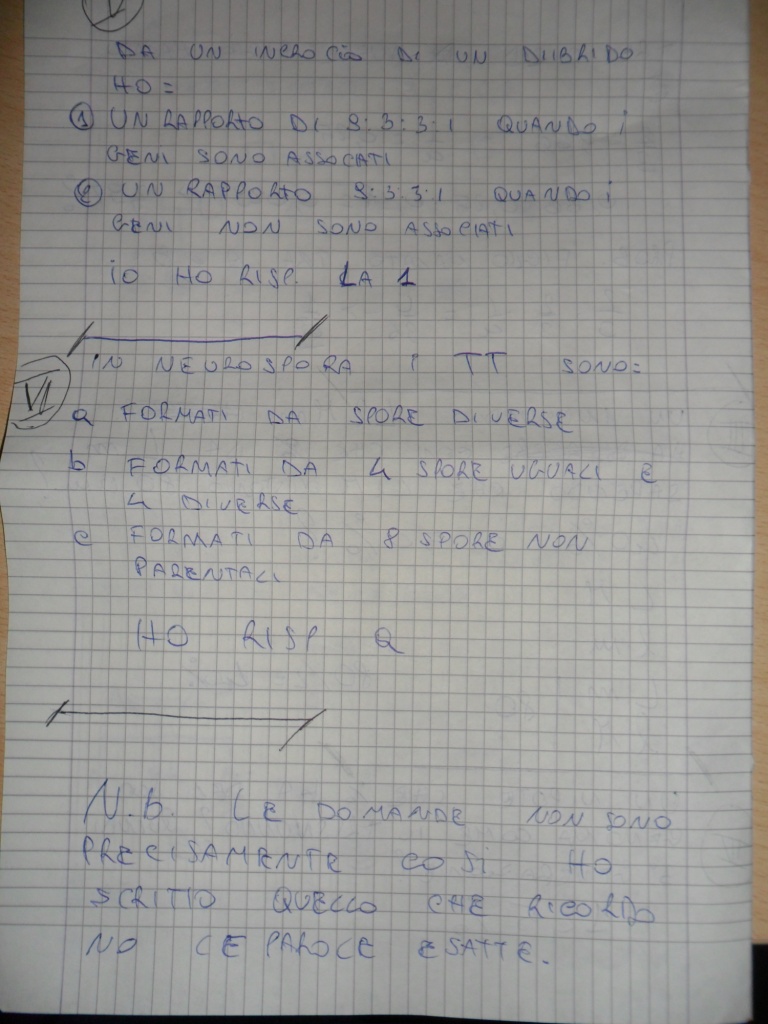 V
DA UN INCROCIO DI UN DIIBRIDO
HO =
① UN RAPPORTO DI 9:3:3:1 QUANDO i
GENI SONO ASSOCATI
② UN RAPPORTO 9:3:3:1 QUANDO i
GENI NON SONO ASSOCIATI
iO HO RISP. LA 1
VI
IN NEUROSPORA I TT SONO=
a FORMATI DA SPORE DIVERSE
b FORMATI DA 4 SPORE UGUALI E
4 DIVERSE
c FORMATI DA 8 SPORE NON
PARENTALI
HO RISP a
N.b. LE DOMANDE NON SONO
PRECISAMENTE COSI HO
SCRITTO QUELLO CHE RICORDO
NO LE PAROLE ESATTE.